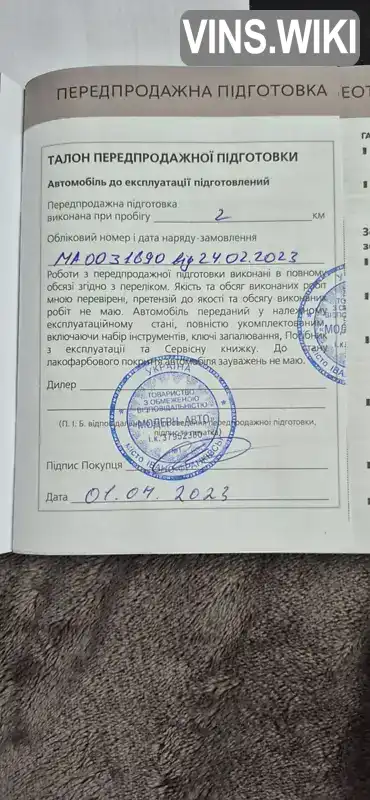 VINS.WIKI
ПЕРЕДПРОДАЖНА ПІДГОТОВКА
ТАЛОН ПЕРЕДПРОДАЖНОЇ ПІДГОТОВКИ
Автомобіль до експлуатації підготовлений
Передпродажна підготовка
виконана при пробігу 2 км
Обліковий номер і дата наряду-замовлення
МА0031690 від 24.02.2023
Роботи з передпродажної підготовки виконані в повному
обсязі згідно з переліком. Якість та обсяг виконаних робіт
мною перевірені, претензій до якості та обсягу виконаних
робіт не маю. Автомобіль переданий у належному
експлуатаційному стані, повністю укомплектований,
включаючи набір інструментів, ключі запалювання, Посібник
з експлуатації та Сервісну книжку. До стану
лакофарбового покриття автомобіля зауважень не маю.
Дилер
УКРАЇНА
ТОВАРИСТВО
З ОБМЕЖЕНОЮ
ВІДПОВІДАЛЬНІСТЮ
"МОДЕРН-АВТО"
і.к.
місто ІВАНО-ФРАНКІВСЬК
(П. І. Б. передпродажної підготовки,
Підпис Покупця
Дата 01.04.2023